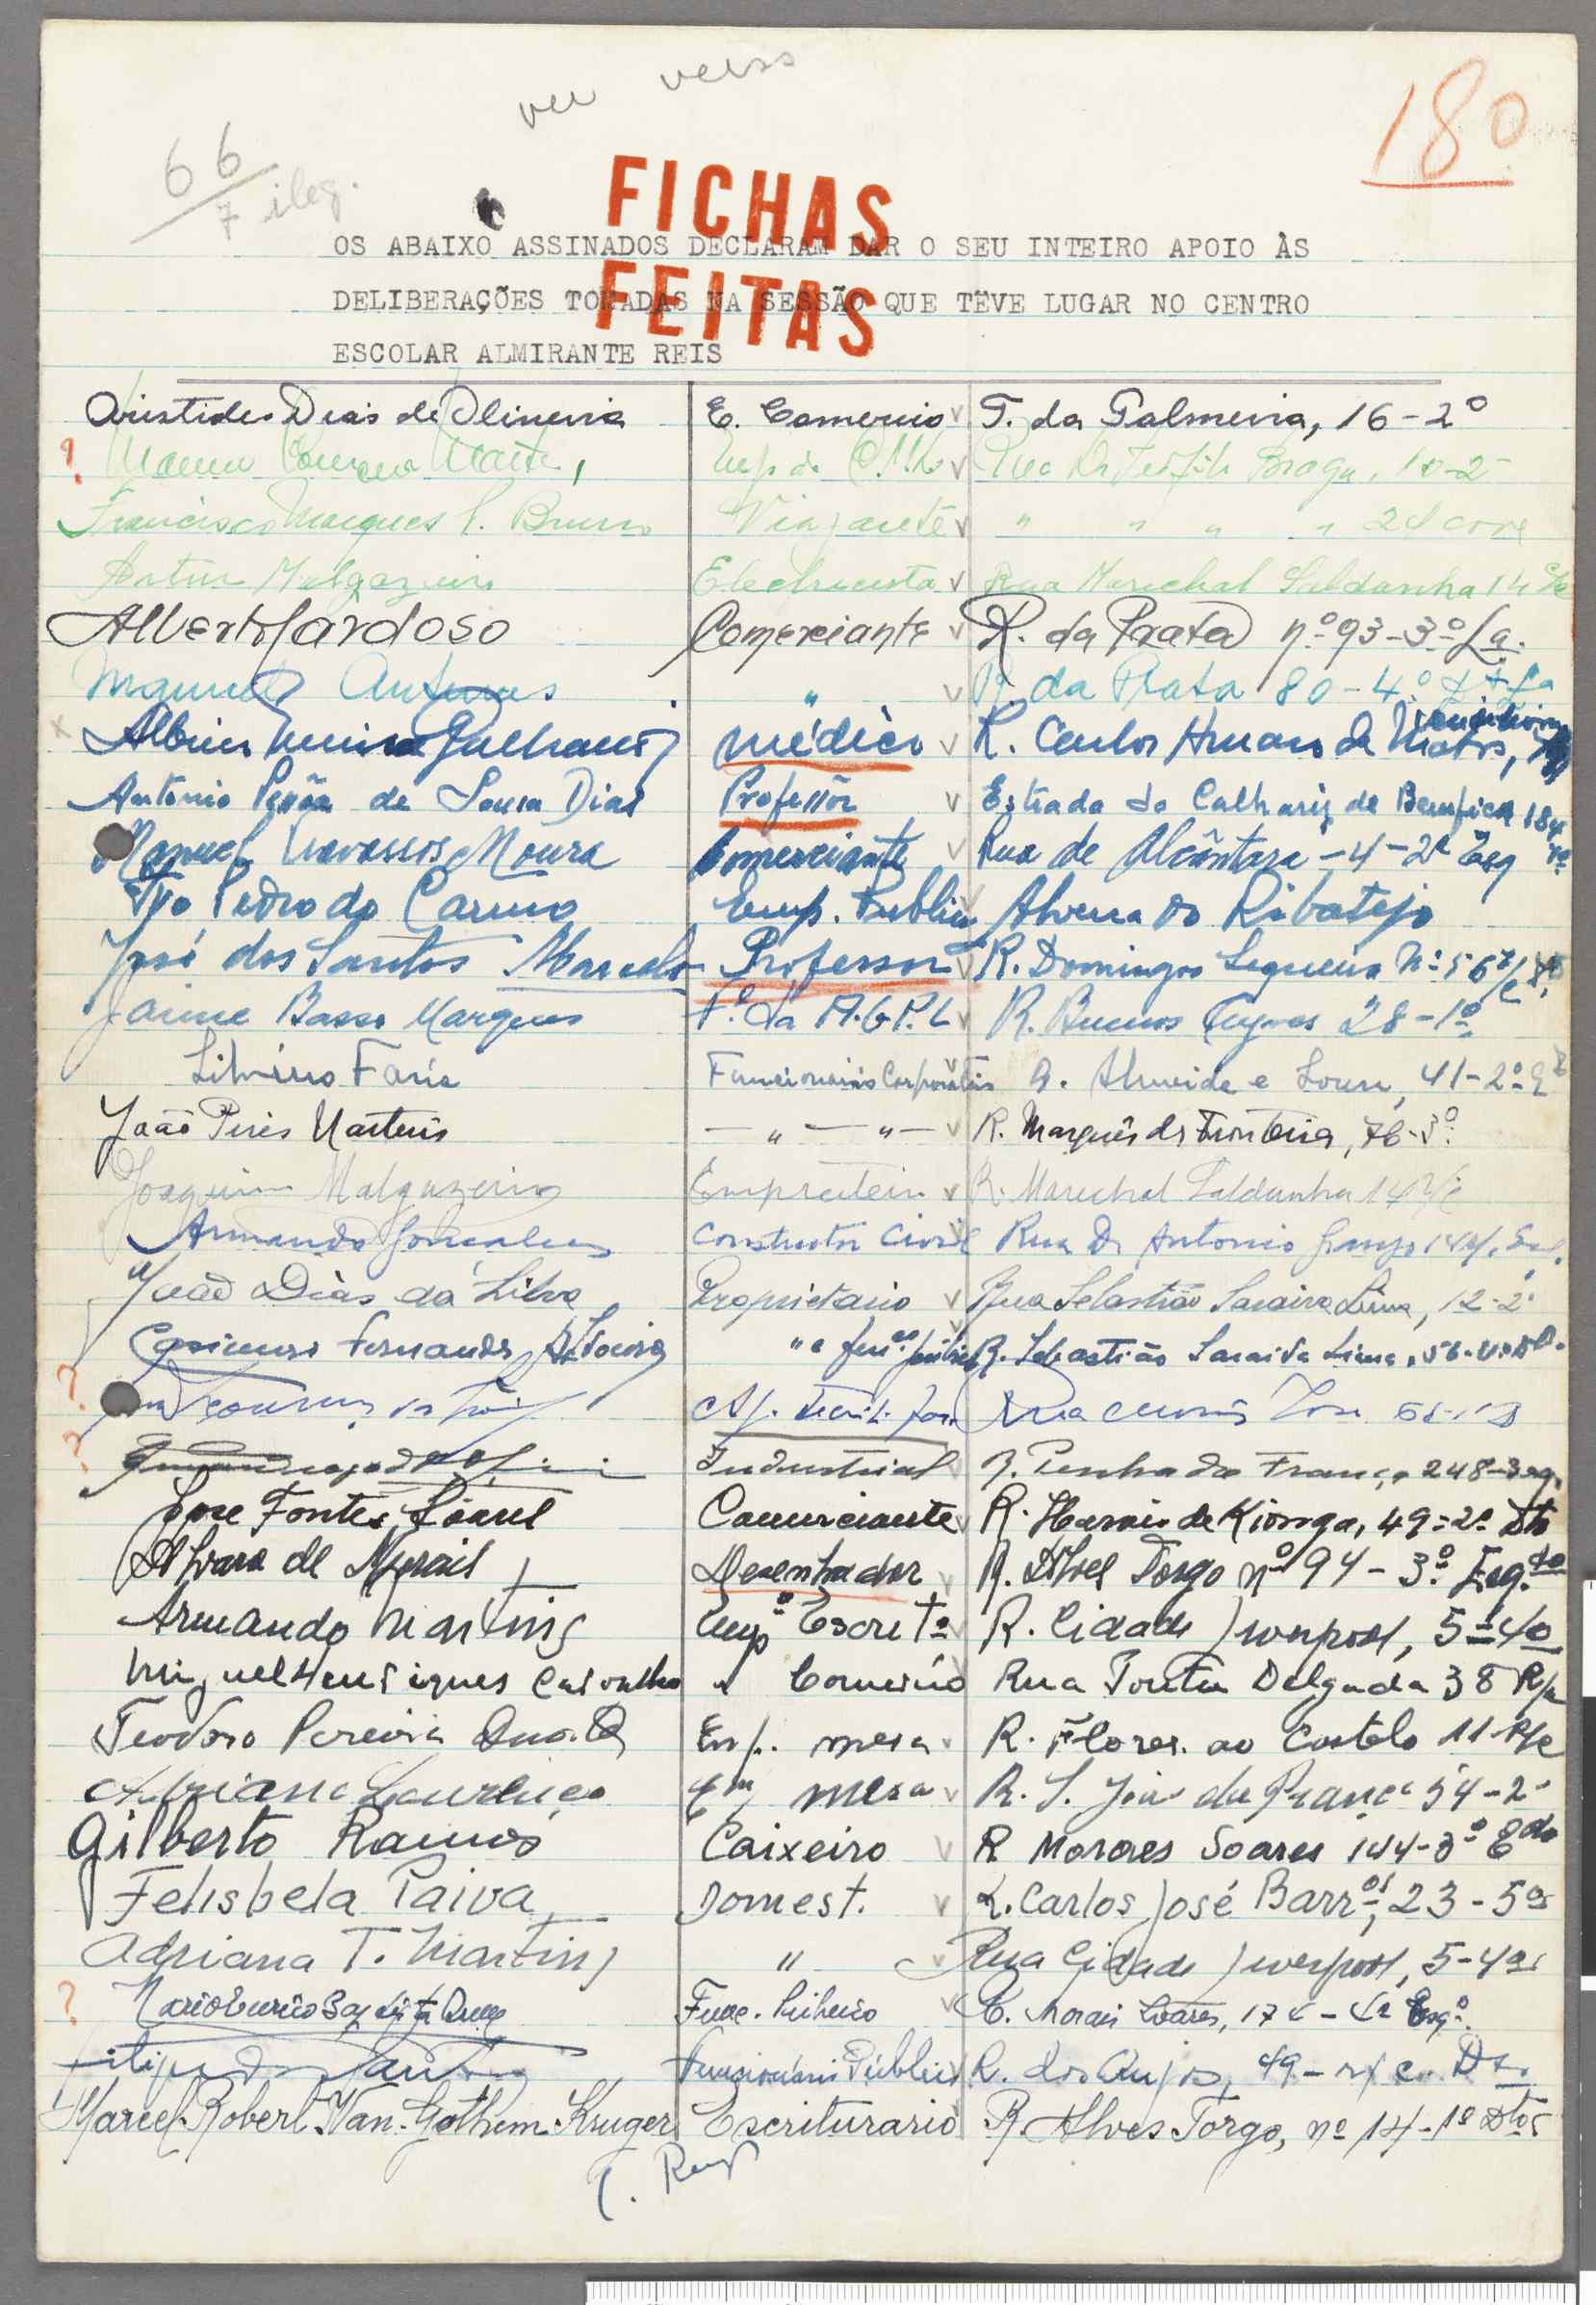 ver verso
180
66
7 ileg.
FICHAS
FEITAS
OS ABAIXO ASSINADOS DECLARAM DAR O SEU INTEIRO APOIO ÀS
DELIBERAÇÕES TOMADAS NA SESSÃO QUE TÊVE LUGAR NO CENTRO
ESCOLAR ALMIRANTE REIS
Aristides Dias de Oliveira E. Comercio T. da Palmeira, 16-2º
? Emp. da Rua Dr Teófilo Braga, 10-2º
Francisco Marques Bruno Viajante " " " " 24 cave
Artur Malgazeiro Electricista Rua Marechal Saldanha 14
Alberto Cardoso Comerciante R. da Prata nº 93-3º
Manuel Antunes " R. da Prata 80-4º
Albino médico R. Carlos de
Antonio Pessôa de Sousa Dias Professor Estrada do Calhariz de Benfica 184
Manuel Travassos Moura Comerciante Rua de Alcântara-4-2º Esq
Ivo Pedro do Carmo Emp. Publico Alverca do Ribatejo
José dos Santos Marcelo Professor R. Domingos Sequeira Nº 56
Jaime Basso Marques Fº da A.G.P.L R. Buenos Ayres 28-1º
Libério Faria Funcionario Corporativo R. Almeida e Sousa, 41-2º E
João Pires Martins —"—"— R. Marquês da Fronteira, 76-3º
Joaquim Malgazeiro Empreiteiro R. Marechal Saldanha 14 R/c
Armando Gonçalves Construtor Civil Rua Dr Antonio
João Dias da Silva Proprietario Rua Sebastião Saraiva Lima, 12-2º
Casimiro Fernandes " e R. Sebastião Saraiva Lima, 56
? Rua
? Industrial R. Penha de França 248-3
José Fontes Soares Comerciante R. Heroes de Kionga, 49-2º Dto
Alvaro de Morais Desenhador R. Alves Torgo nº 94-3º Esq.do
Armando Martins Empº Escritº R. Cidade Liverpool, 5-4º
Miguel Henriques Carvalho " Comercio Rua Ponta Delgada 38 R/c
Teodoro Pereira Duarte Emp. mesa R. Flores ao Castelo 11 R/c
Adriano Lourenço Em mesa R. S. João da Praça 54-2º
Gilberto Ramos Caixeiro R Moraes Soares 144-3º Edo
Felisbela Paiva Domest. R. Carlos José Barros, 23-5º
Adriana T. Martins " Rua Cidade Liverpool, 5-4º
? Mario Eurico Baptista Func. R. Morais Soares, Esqº.
Filipe dos Santos Funcionário Público R. dos Anjos, 49-r/c Dto
Marcel Robert Van Gothem Kruger Escriturario R. Alves Torgo, nº 14-1º Dto